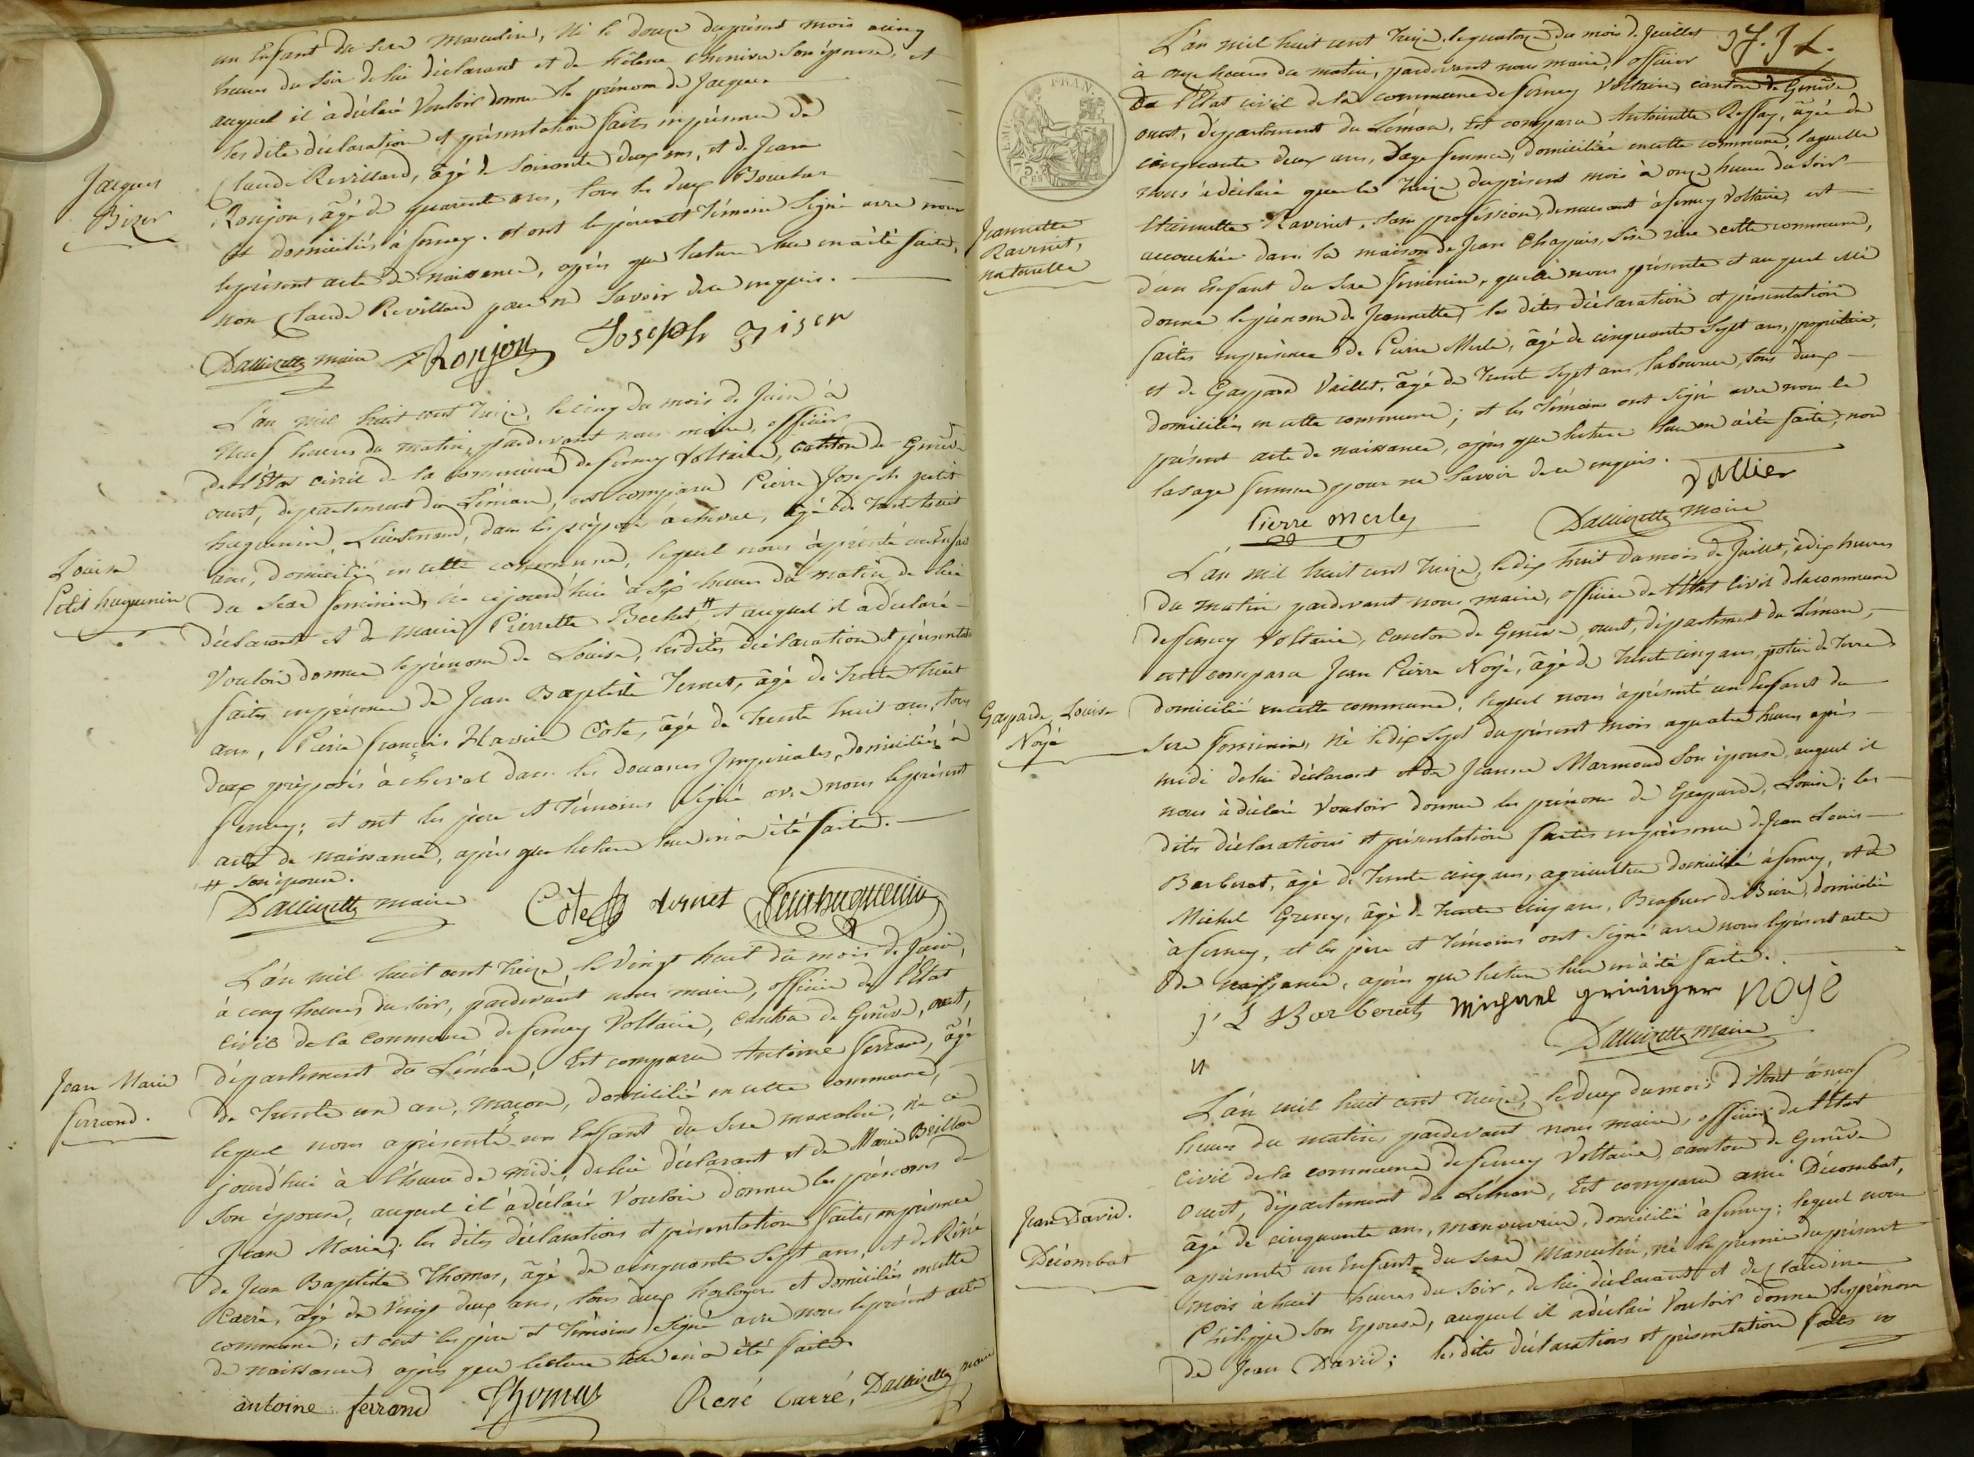 un Enfant du sexe masculin, né le douze du présent mois à cinq
heures du soir de lui déclarant et de hélène son épouse, et
auquel il à déclaré Vouloir donner le prénom de Jacques
les dite déclaration et présentation faits en présence de
Jacques
Bizer
Claude Revillard, âgé de soixante deux ans, et de Jean
Ronjon, âgé de quarente ans, tous les deux
et domiciliés à ferney. et ont le père et témoin signé avec nous
le présent acte de naissance, après que lecture leur en à été faite,
non Claude Revillard pour ne savoir de ce enquis.
Dallizette maire Ronjon Joseph Bizer
L'an mil huit cent treize, le cinq du mois de Juin à
Neuf heures du matin, pardevant nous maire, officier
de l'État civil de la commune de ferney Voltaire, canton de Genève
ouest, département du Léman, est comparu Pierre Joseph petit
huguenin, Lieutenant, dans les préposés à cheval, âgé de trente huit
Louise
Petit huguenin
ans, domicilié en cette commune, lequel nous à présenté un Enfant
du sexe féminin, né cejourd'hui à six heures du matin de lui
déclarant et de Marie Pierrette Bechet # et auquel il a déclaré
Vouloir donner le prénom de Louise, les dites déclaration et présentation
faites en présence de Jean Baptiste Vernet, âgé de trente huit
ans, Pierre françois Xavier Côte, âgé de trente huit ans, tous
deux préposés à cheval dans les douanes Impériales, domiciliés à
ferney; et ont les père et témoins signé avec nous le présent
acte de naissance, après que lecture leur en à été faite.
# son épouse.
Dallizette maire Côte vernet Petithuguenin
L'an mil huit cent treize, le vingt huit du mois de Juin,
à cinq heures du soir, pardevant nous maire, officier de l'État
civil de la commune de ferney Voltaire, canton de Genève, ouest,
département du Léman, Est comparu Antoine ferrand, âgé
Jean Marie
ferrand.
de trente un an, maçon, domicilié en cette commune,
lequel nous a présenté un Enfant du sexe masculin, né ce
jourd'hui à l'heure de midi, de lui déclarant et de Marie Brillon
son épouse, auquel il à déclaré Vouloir donner les prénoms de
Jean Marie; les dites déclarations et présentation faites en présence
de Jean Baptiste Thomas, âgé de cinquante sept ans, et de René
Carré, âgé de vingt deux ans, tous deux horlogers et domiciliés en cette
commune; et ont les père et témoins signé avec nous le présent acte
de naissance, après que lecture leur en à été faite
antoine ferrand Thomas René Carré, Dallizette maire
L'an mil huit cent treize, le quatorze du mois de Juillet
à onze heures du matin, pardevant nous maire, officier
de l'État civil de la commune de ferney Voltaire, canton de Genève
ouest, département du Léman, est comparu Antoinette Reffay, âgée de
cinquante deux ans, sage femme, domiciliée en cette commune, laquelle
nous à déclaré que le treize du présent mois à onze heures du soir
Jeannette
Ravinet,
naturelle
Etiennette Ravinet, sans profession, demeurant à ferney Voltaire, est
accouchée dans la maison de Jean Chapuis, sise rière cette commune,
d'un Enfant du sexe féminin, qu'elle nous présente et auquel elle
donne le prénom de Jeannette; les dites déclaration et présentation
faites en présence de Pierre Merle, âgé de cinquante sept ans, propriétaire,
et de Gaspard Vaillet, âgé de trente sept ans, laboureur, tous deux
domiciliés en cette commune; et les témoins ont signé avec nous le
présent acte de naissance, après que lecture leur en à été faite, non
la sage femme pour ne savoir de ce enquis.
Pierre merle Dallizette maire
L'an mil huit cent treize, le dix huit du mois de Juillet, à dix heures
du matin pardevant nous maire, officier de l'État Civil de la commune
de ferney Voltaire, canton de Genève ouest, département du Léman,
est comparu Jean Pierre Noyé, âgé de trente cinq ans, potier de terre
Gasparde Louise
Noyé
domicilié en cette commune, lequel nous à présenté un Enfant du
sexe féminin, né le dix sept du présent mois à quatre heures après
midi de lui déclarant et de Jeanne Marmoud son épouse, auquel il
nous à déclaré Vouloir donner les prénoms de Gasparde, Louise; les
dites déclarations et présentation faites en présence de Jean Louis
Barberat, âgé de trente cinq ans, agriculteur domicilié à ferney, et de
Michel Greney, âgé de trente cinq ans, Brasseur de Bière, domicilié
à ferney, et les père et témoins ont signé avec nous le présent acte
de naissance, après que lecture leur en à été faite.
j L Barberat Michael grininger Noyé
Dallizette maire
L'an mil huit cent treize, le deux du mois d'Aout à neuf
heures du matin, pardevant nous maire, officier de l'État
civil de la commune de ferney Voltaire, canton de Genève
ouest, département du Léman, Est comparu amé Décombat,
Jean David.
Décombat
âgé de cinquante ans, manouvrier, domicilié à ferney; lequel nous
a présenté un Enfant du sexe Masculin, né le premier du présent
mois à huit heures du soir, de lui déclarant et de Claudine
Philippe son Epouse, auquel il a déclaré Vouloir donner les prénoms
de Jean David; les dites déclarations et présentation faites en